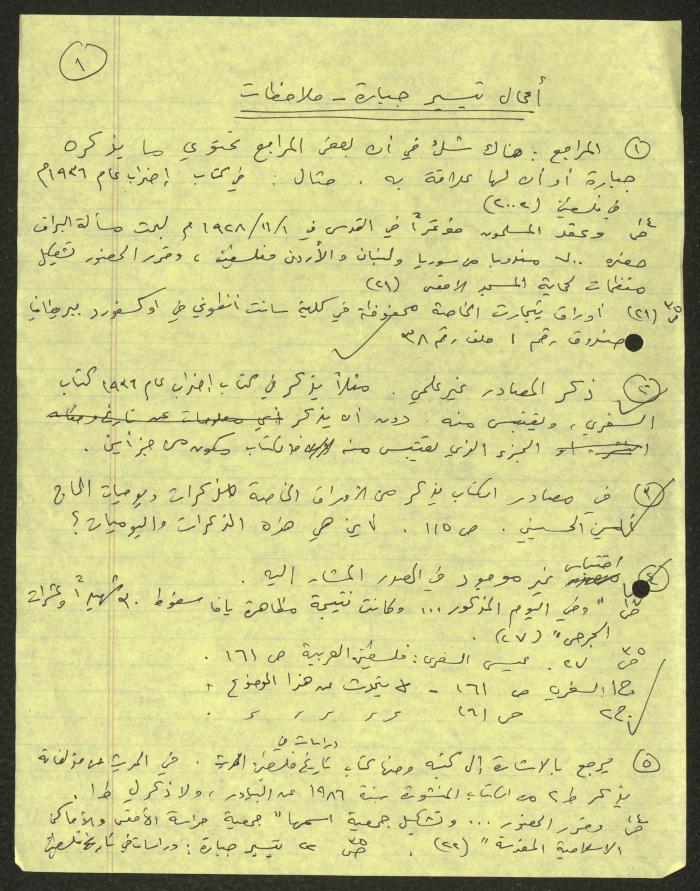 ١
أعمال تيسير جبارة - ملاحظات
١ المراجع : هناك شك في أن بعض المراجع تحتوي ما يذكره
جبارة أو أن لها علاقة به . مثال : في كتاب إضراب عام ١٩٣٦م
في فلسطين (٢٠٠٢)
ص١٤ وعقد المسلمون مؤتمراً في القدس في ١/١١/١٩٢٨م لبحث مسألة البراق
حضره ٧٠٠ مندوبا من سوريا ولبنان والأردن وفلسطين ، وقرر الحضور تشكيل
منظمات لحماية المسجد الأقصى (٢١)
ص٣٥ (٢١) أوراق تيجارت الخاصة محفوظة في كلية سانت أنطوني في اوكسفورد ببريطانيا
صندوق رقم ١ ملف رقم ٣٨
٢ ذكر المصادر غير علمي . مثلاً يذكر في كتاب إضراب عام ١٩٣٦ كتاب
السفري ، ويقتبس منه . دون أن يذكر أي معلومات عن تاريخ ومكان
الجزء الذي يقتبس منه فالكتاب مكون من جزأين .
٣ في مصادر الكتاب يذكر من الأوراق الخاصة مذكرات ويوميات الحاج
أمين الحسيني . ص ١١٥ . أين هي هذه المذكرات واليوميات ؟
٤ اقتباس غير موجود في المصدر المشار إليه .
ص "وفي اليوم المذكور ... وكانت نتيجة مظاهرة يافا سقوط ٣٠ شهيداً وعشرات
الجرحى" (٢٧) .
ص٣٥ ٢٧. عيسى السفري : فلسطين العربية ص ١٦١ .
ج١ السفري ص ١٦١ - لا يتحدث عن هذا الموضوع .
ج٢ ص ١٦١ 〃 〃 〃 〃 .
دراسات في
٥ يرجع بالإشارة إلى كتبه ومنها كتاب تاريخ فلسطين الحديث . في الحديث عن مؤلفاته
يذكر ط٢ من الكتاب المنشورة سنة ١٩٨٦ عن البيادر ، ولا ذكر ل ط١ .
ص١٤ وقرر الحضور ... وتشكيل جمعية اسمها "جمعية حراسة الأقصى والأماكن
الاسلامية المقدسة" (٢٢) . ص٣٥ ٢٢ تيسير جبارة : دراسات في تاريخ فلسطين